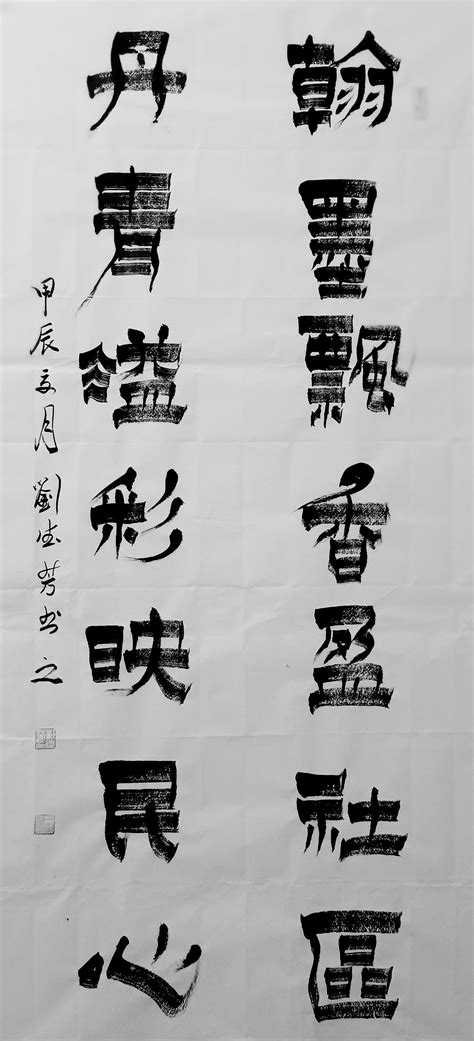 翰墨飄香盈社區
丹青溢彩映民心
甲辰夏月劉德芳书之